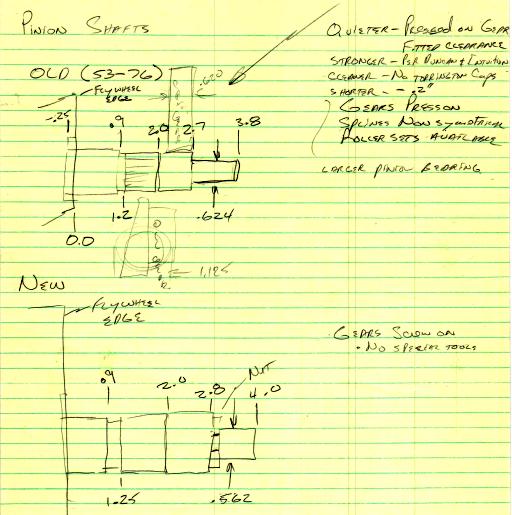 PINION SHAFTS
OLD (53-76)
FLYWHEEL
EDGE
.620
-.25
.9
2.0
2.7
3.8
1.2
.624
0.0
1.125
QUIETER - PRESSED ON GEAR
FITTED CLEARANCE
STRONGER - PER DUNCAN & INTUITION
CLEANER - NO TORRINGTON CAPS
SHORTER - -.2"
GEARS PRESS ON
SPLINES NON SYMETRICAL
ROLLER SETS AVAILABLE
LARGER PINION BEARING
NEW
FLYWHEEL
EDGE
GEARS SCREW ON
• NO SPECIAL TOOLS
.9
2.0
2.8
NUT
4.0
1.25
.562